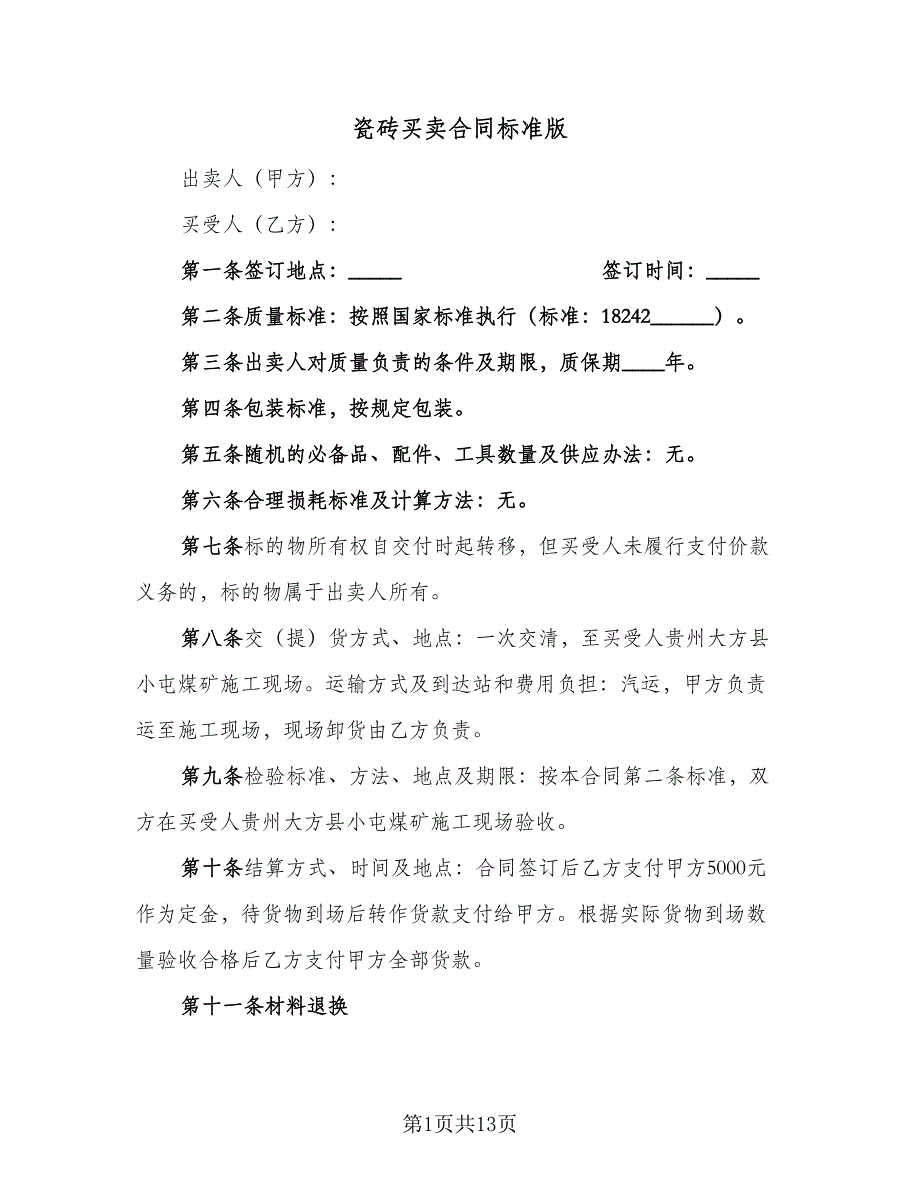 瓷砖买卖合同标准版
出卖人（甲方）：
买受人（乙方）：
第一条签订地点：_____ 签订时间：_____
第二条质量标准：按照国家标准执行（标准：18242______）。
第三条出卖人对质量负责的条件及期限，质保期____年。
第四条包装标准，按规定包装。
第五条随机的必备品、配件、工具数量及供应办法：无。
第六条合理损耗标准及计算方法：无。
第七条标的物所有权自交付时起转移，但买受人未履行支付价款
义务的，标的物属于出卖人所有。
第八条交（提）货方式、地点：一次交清，至买受人贵州大方县
小屯煤矿施工现场。运输方式及到达站和费用负担：汽运，甲方负责
运至施工现场，现场卸货由乙方负责。
第九条检验标准、方法、地点及期限：按本合同第二条标准，双
方在买受人贵州大方县小屯煤矿施工现场验收。
第十条结算方式、时间及地点：合同签订后乙方支付甲方5000元
作为定金，待货物到场后转作货款支付给甲方。根据实际货物到场数
量验收合格后乙方支付甲方全部货款。
第十一条材料退换
第1页共13页